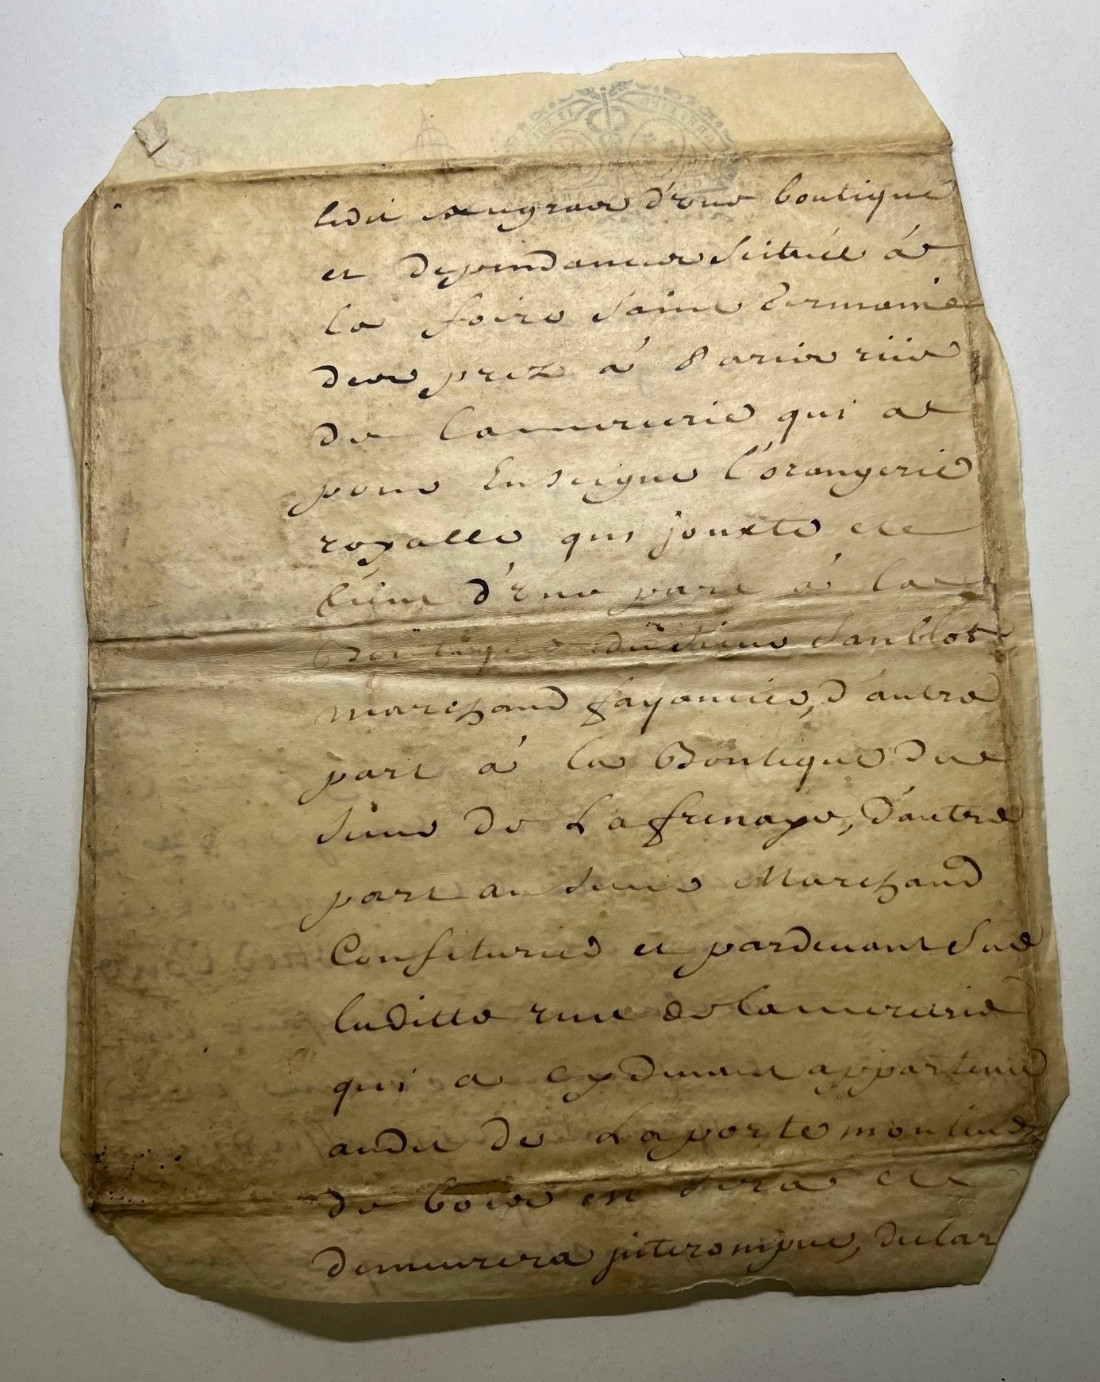 ledit Seugrave d'une boutique
et dependances Scituée a
la foire Saint Germain
des prez à Paris rüe
de Lamercerie qui a
pour Enseigne l'orangerie
royalle qui jouxte et
tiens d'une part à la
Boutique du Sieur Sanblot
marchand fayancier, d'autre
part à la Boutique du
Sieur de Lafrenaye, d'autre
part au Sieur Marchand
Confiturier et pardevant Sur
laditte rue de Lamercerie
qui a cydevant appartenu
audit de Laporte mouleur
de bois en sera et
demeurera jnterompue, declar